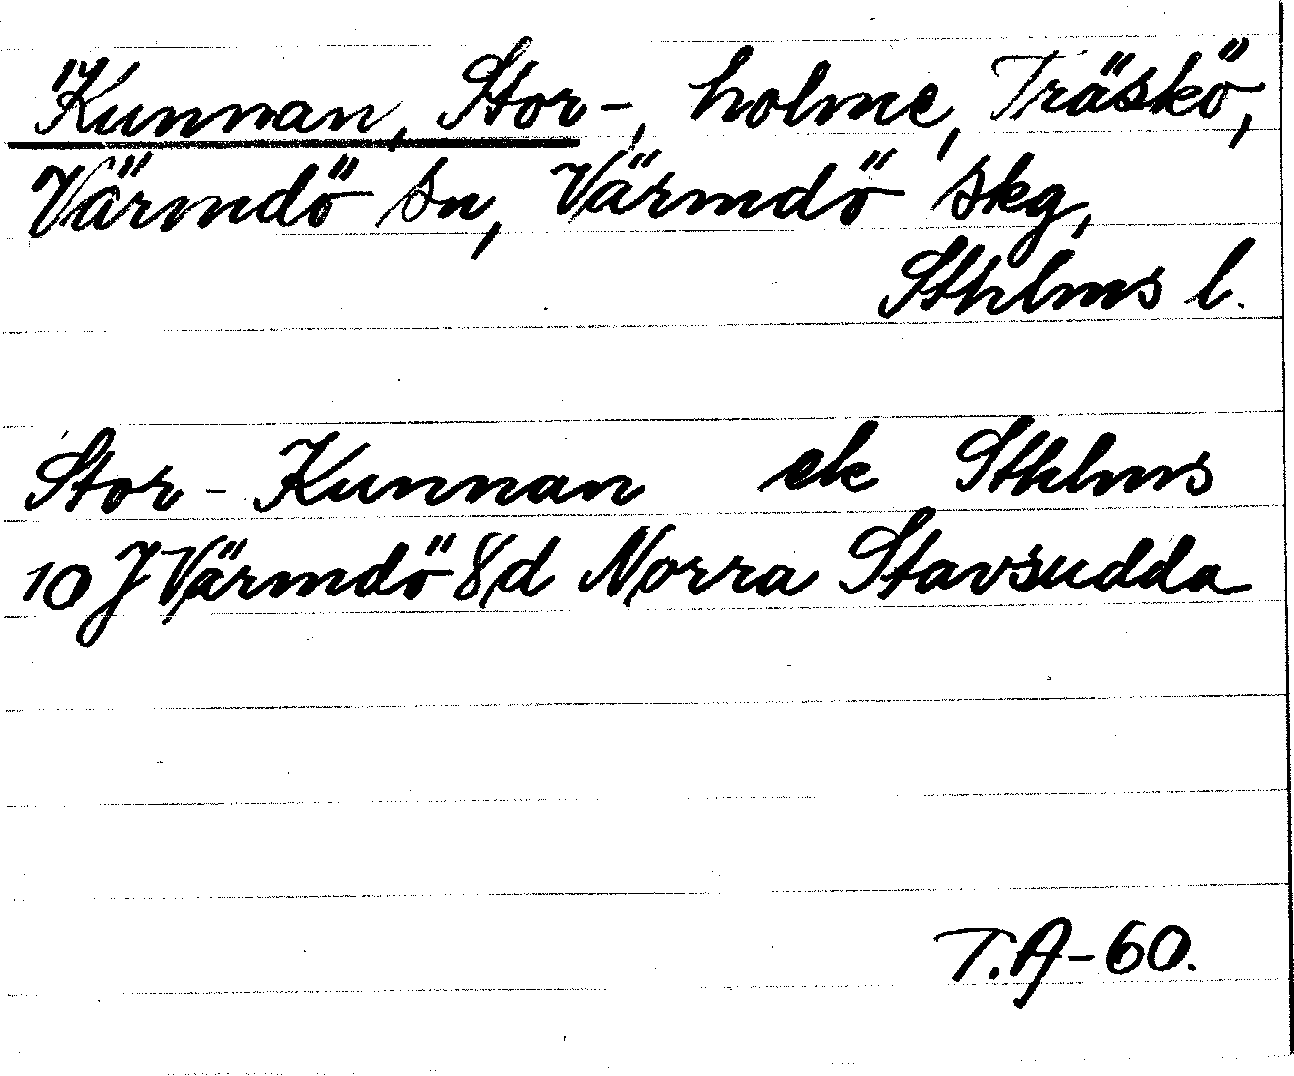 Kunnan, Stor-, holme, Träskö,
Värmdö sn, Värmdö skg,
Sthlms l.
Stor-Kunnan ek Sthlms
10 J Värmdö 8d Norra Stavsudda
T.A-60.